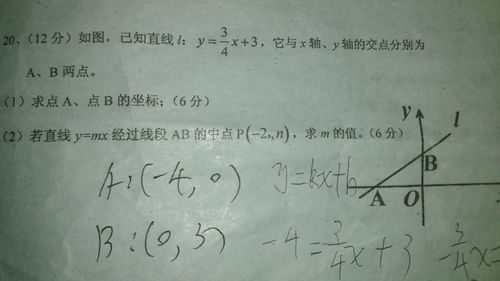 20、(12分) 如图，已知直线 l： y=3/4x+3，它与 x 轴、y 轴的交点分别为
A、B 两点。
(1) 求点 A、点 B 的坐标；(6分)
(2) 若直线 y=mx 经过线段 AB 的中点 P(-2,,n)，求 m 的值。(6分)
y
l
B
A
O
A:(-4,0) y=kx+b
B:(0,3) -4=3/4x+3 -3/4x=